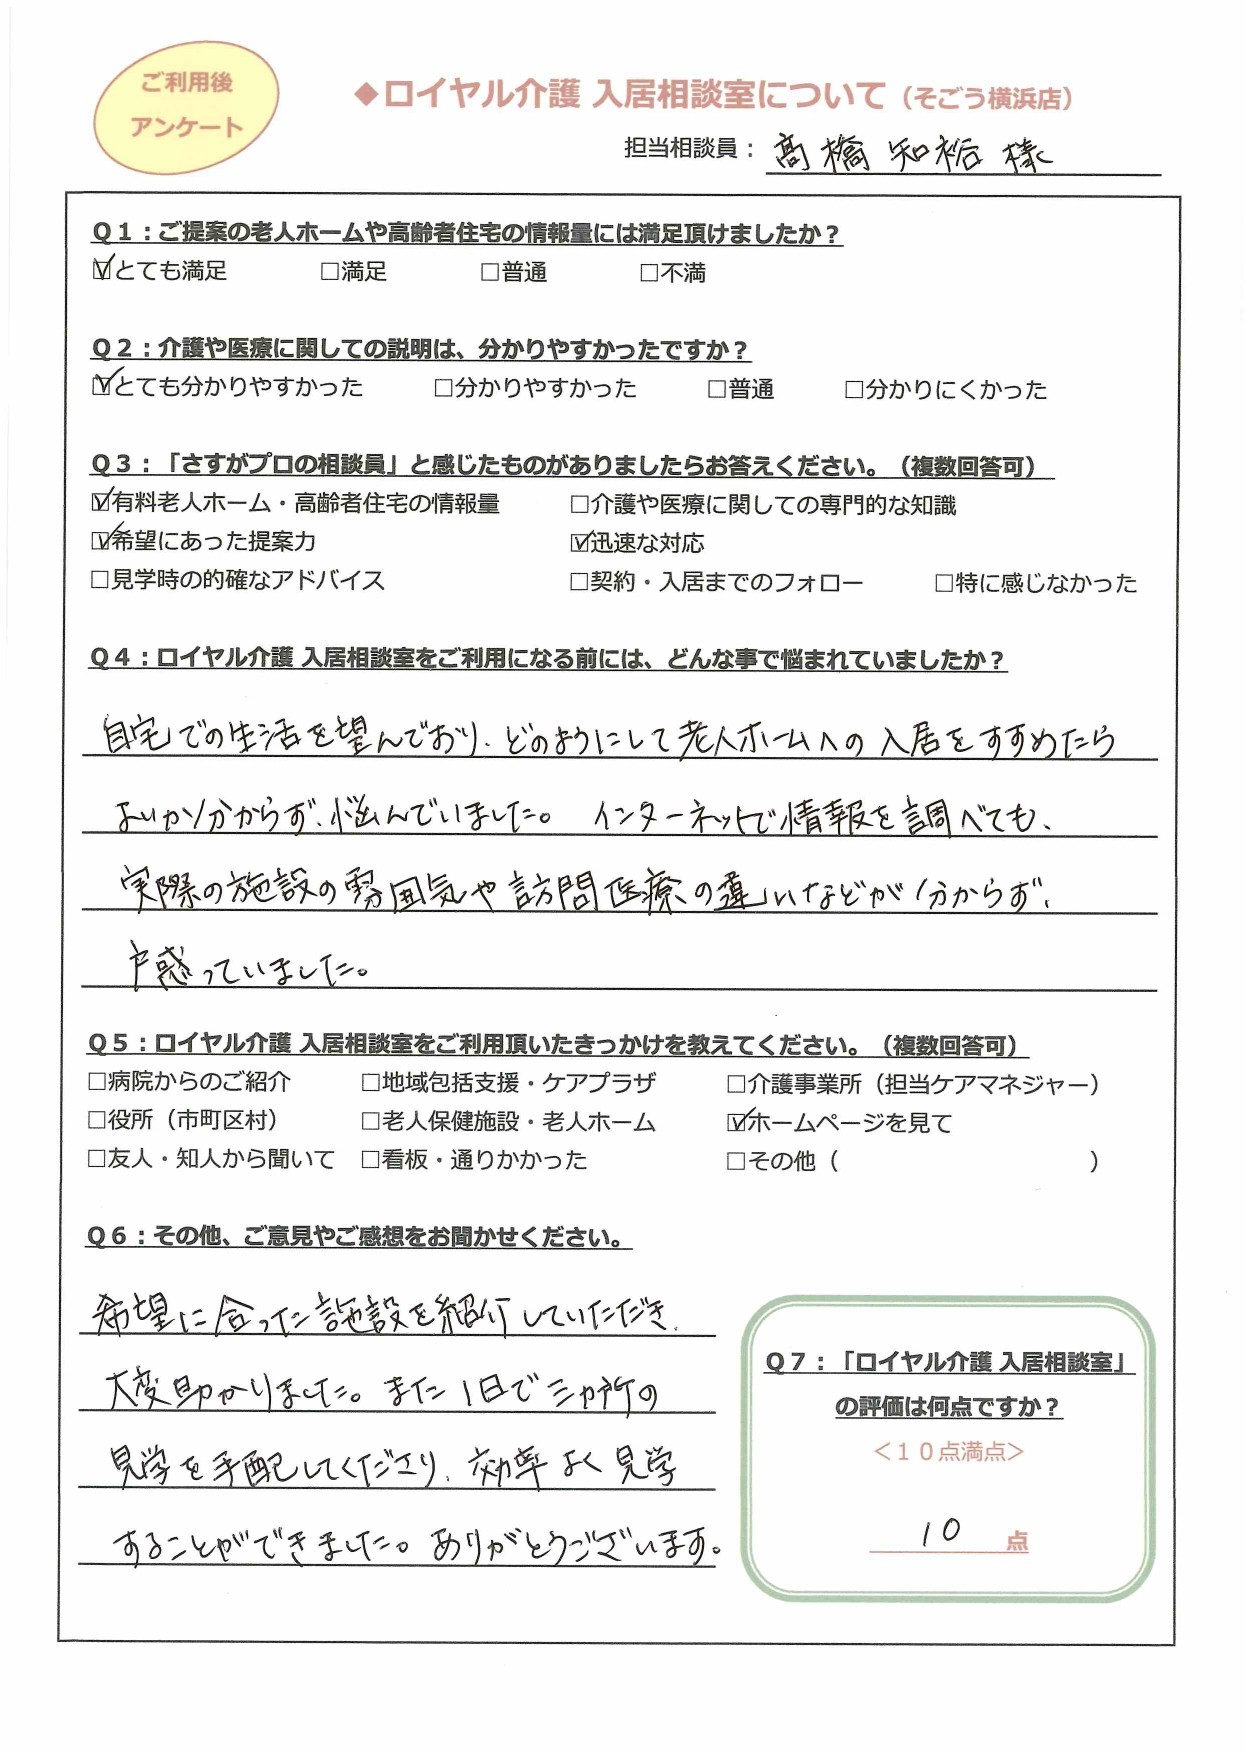 ご利用後
アンケート
◆ロイヤル介護 入居相談室について（そごう横浜店）
担当相談員： 髙橋 知裕 様
Q１：ご提案の老人ホームや高齢者住宅の情報量には満足頂けましたか？
☑とても満足 □満足 □普通 □不満
Q２：介護や医療に関しての説明は、分かりやすかったですか？
☑とても分かりやすかった □分かりやすかった □普通 □分かりにくかった
Q３：「さすがプロの相談員」と感じたものがありましたらお答えください。（複数回答可）
☑有料老人ホーム・高齢者住宅の情報量 □介護や医療に関しての専門的な知識
☑希望にあった提案力 ☑迅速な対応
□見学時の的確なアドバイス □契約・入居までのフォロー □特に感じなかった
Q４：ロイヤル介護 入居相談室をご利用になる前には、どんな事で悩まれていましたか？
自宅での生活を望んでおり、どのようにして老人ホームへの入居をすすめたら
よいか分からず、悩んでいました。 インターネットで情報を調べても、
実際の施設の雰囲気や訪問医療の違いなどが分からず、
戸惑っていました。
Q５：ロイヤル介護 入居相談室をご利用頂いたきっかけを教えてください。（複数回答可）
□病院からのご紹介 □地域包括支援・ケアプラザ □介護事業所（担当ケアマネジャー）
□役所（市町区村） □老人保健施設・老人ホーム ☑ホームページを見て
□友人・知人から聞いて □看板・通りかかった □その他（ ）
Q６：その他、ご意見やご感想をお聞かせください。
希望に合った施設を紹介していただき、
大変助かりました。また１日で三カ所の
見学を手配してくださり、効率よく見学
することができました。ありがとうございます。
Q７：「ロイヤル介護 入居相談室」
の評価は何点ですか？
＜１０点満点＞
10 点